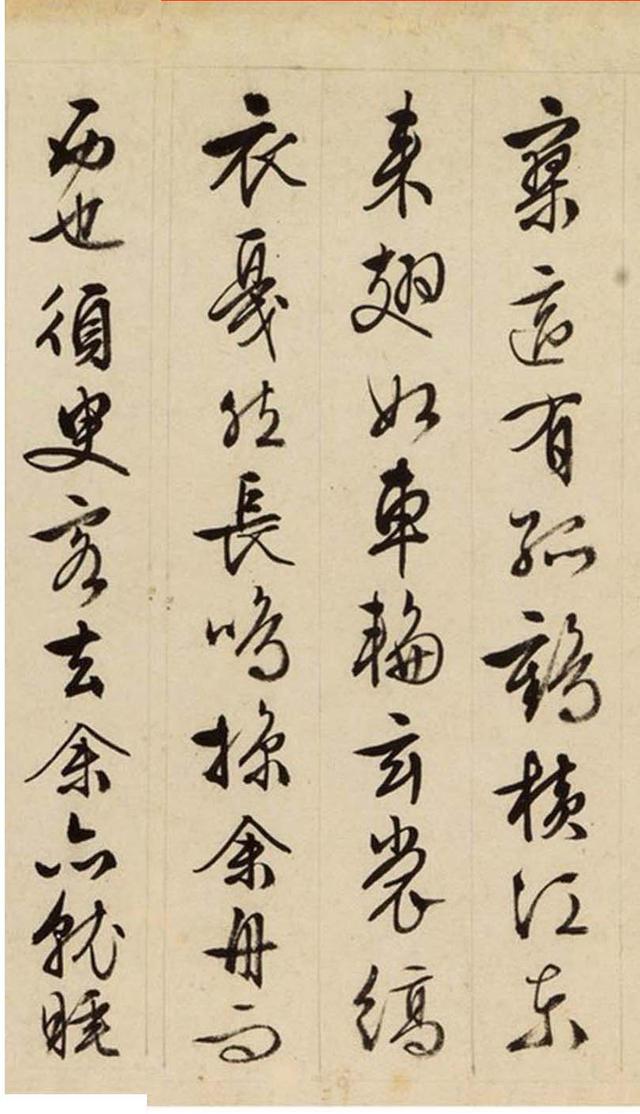 寥適有孤鶴橫江東
來翅如車輪玄裳縞
衣戛然長鳴掠余舟而
西也須臾客去余亦就睡